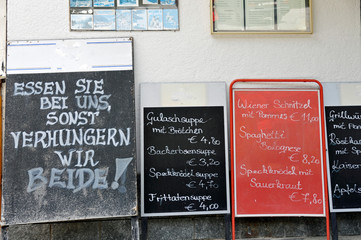 ESSEN SIE
BEI UNS,
SONST
VERHUNGERN
WIR
BEIDE!
Gulaschsuppe
mit Brötchen
€ 4,80
Backerbsensuppe
€ 3,20
Speckknödel suppe
€ 4,70
Frittatensuppe
€ 4,00
Wiener Schnitzel
mit Pommes € 11,00
Spaghetti
Bolognese
€ 8,20
Speckknödel mit
Sauerkraut
€ 7,80
Grillwü
mit Pom
Röstka
Kaiser
Apfels